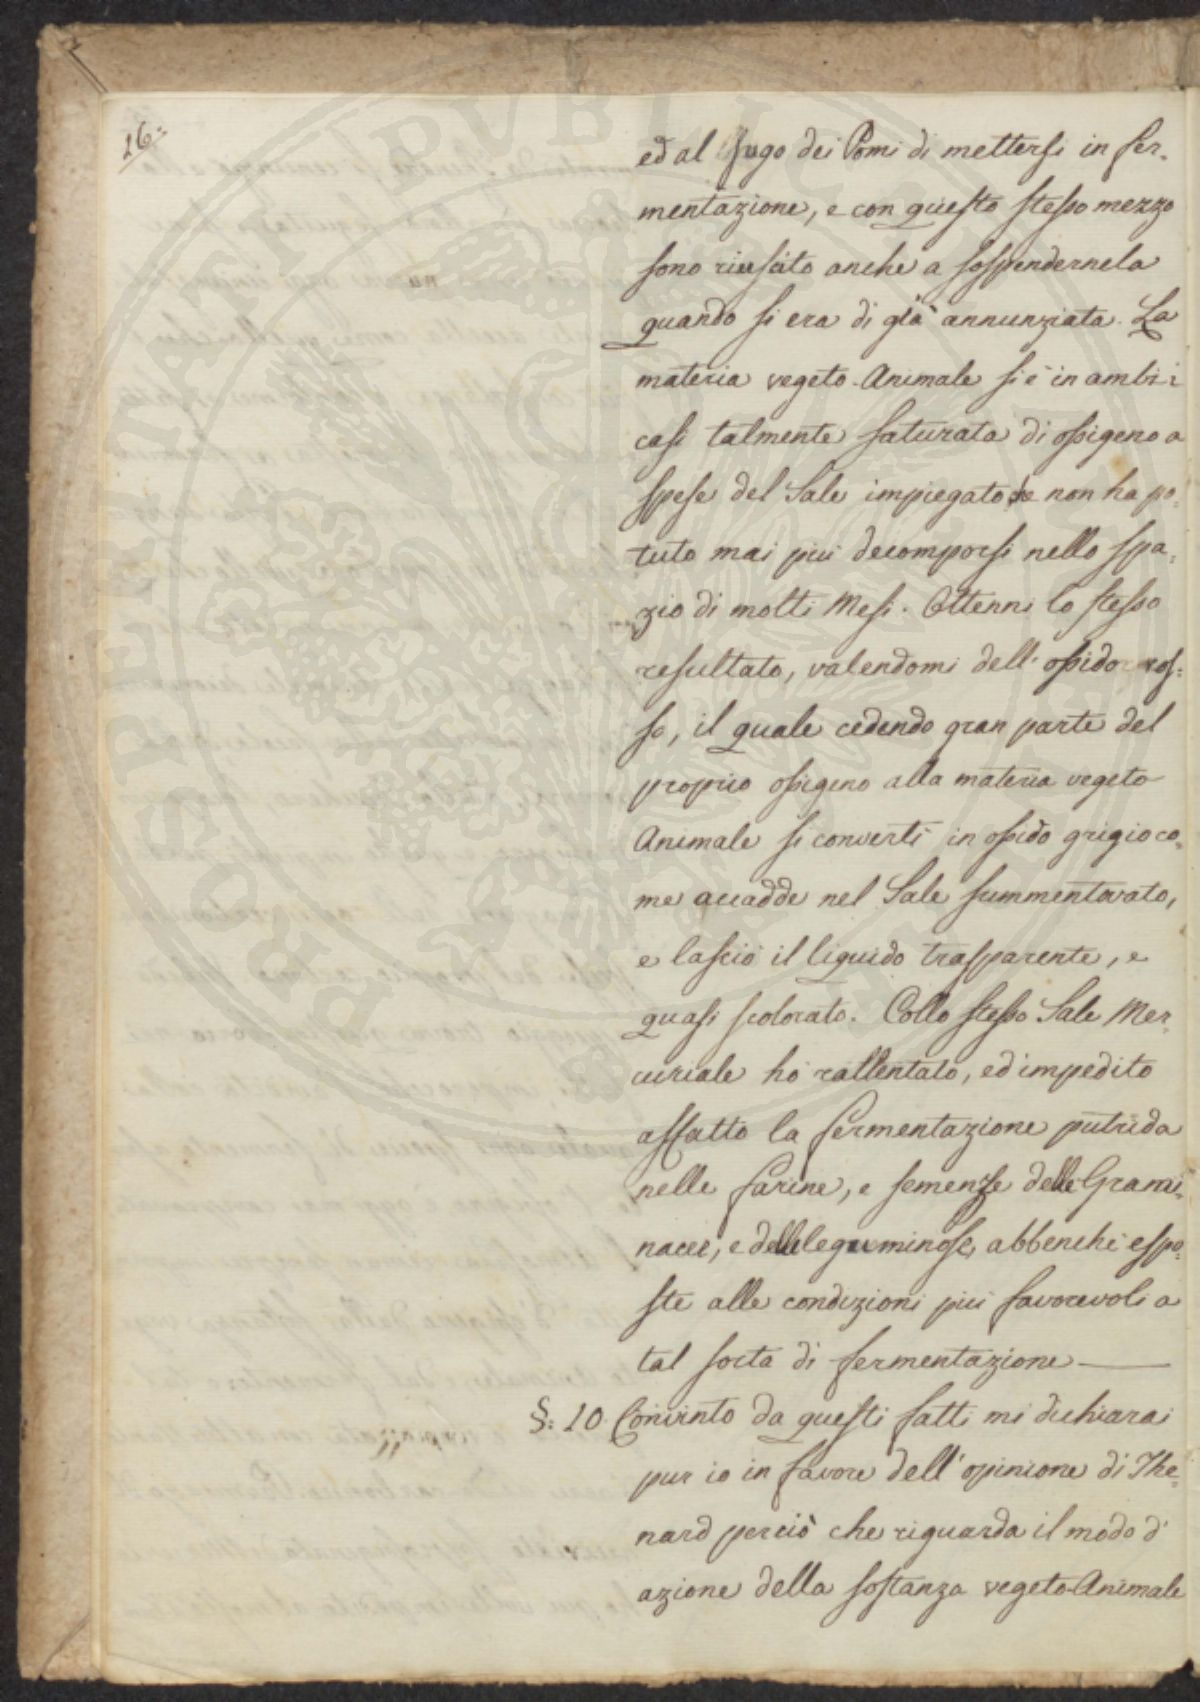 16:
ed al sugo dei Pomi di mettersi in fer-
mentazione, e con questo stesso mezzo
sono riuscito anche a sospendernela
quando si era di già annunziata. La
materia vegeto-Animale si è in ambi i
casi talmente saturata di ossigeno a
spese del Sale impiegato che non ha po-
tuto mai più decomporsi nello spa-
zio di molti Mesi. Ottenni lo stesso
resultato, valendomi dell'ossido ros-
so, il quale cedendo gran parte del
proprio ossigeno alla materia vegeto
Animale si convertì in ossido grigio co-
me accadde nel Sale summentovato,
e lasciò il liquido trasparente, e
quasi scolorato. Collo stesso Sale Mer-
curiale hò rallentato, ed impedito
affatto la fermentazione putrida
nelle farine, e semenze delle Grami-
nacee, e delle leguminose, abbenchè espo-
ste alle condizioni più favorevoli a
tal sorta di fermentazione
§: 10 Convinto da questi fatti mi dichiarai
pur io in favore dell'opinione di The-
nard perciò che riguarda il modo d'
azione della sostanza vegeto-Animale
PROSPERITATI PVBLICAE